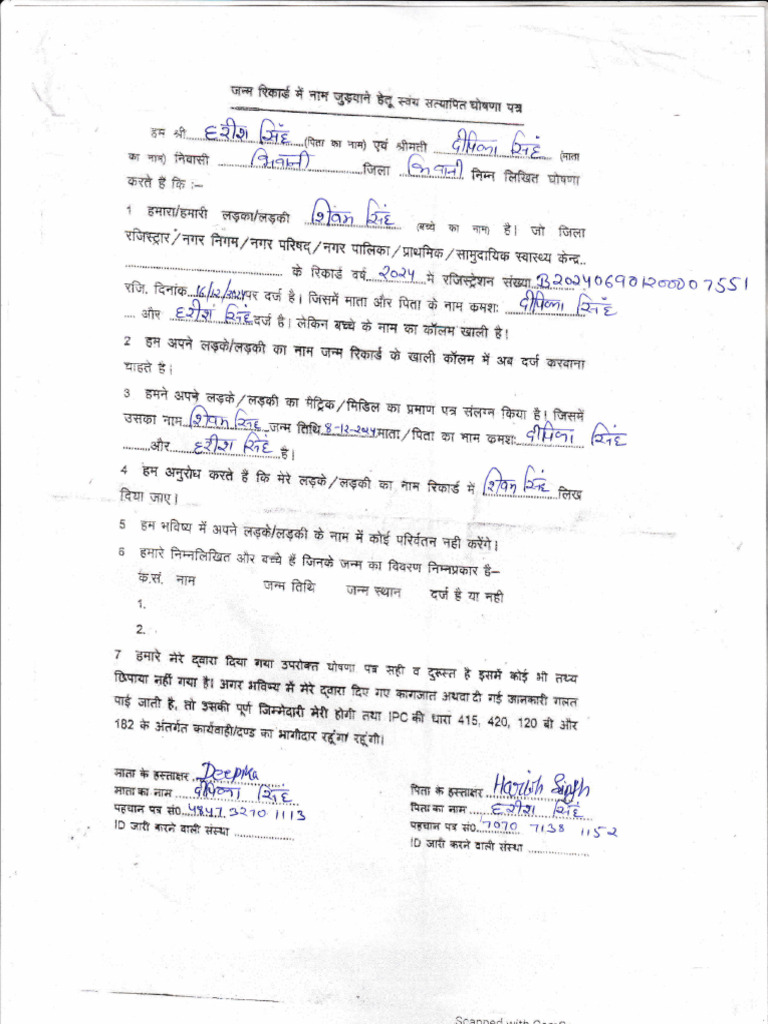 जन्म रिकार्ड में नाम जुड़वाने हेतू स्वयं सत्यापित घोषणा पत्र
हम श्री हरीश सिंह (पिता का नाम) एवं श्रीमती दीपिका सिंह (माता
का नाम) निवासी भिवानी जिला भिवानी निम्न लिखित घोषणा
करते हैं कि :–
1 हमारा/हमारी लड़का/लड़की शिवम सिंह (बच्चे का नाम) है। जो जिला
रजिस्ट्रार/नगर निगम/नगर परिषद्/नगर पालिका/प्राथमिक/सामुदायिक स्वास्थ्य केन्द्र..
के रिकार्ड वर्ष 2024 में रजिस्ट्रेशन संख्या B202406901200007551
रजि. दिनांक 16/12/2024 पर दर्ज है। जिसमें माता और पिता के नाम कमशः दीपिका सिंह
.... और हरीश सिंह दर्ज है। लेकिन बच्चे के नाम का कॉलम खाली है।
2 हम अपने लड़के/लड़की का नाम जन्म रिकार्ड के खाली कॉलम में अब दर्ज करवाना
चाहते है।
3 हमने अपने लड़के/लड़की का मैट्रिक/मिडिल का प्रमाण पत्र संलग्न किया है। जिसमें
उसका नाम शिवम सिंह जन्म तिथि 8-12-2024 माता/पिता का नाम कमशः दीपिका सिंह
और हरीश सिंह है।
4 हम अनुरोध करते हैं कि मेरे लड़के/लड़की का नाम रिकार्ड में शिवम सिंह लिख
दिया जाए।
5 हम भविष्य में अपने लड़के/लड़की के नाम में कोई परिर्वतन नही करेंगे।
6 हमारे निम्नलिखित और बच्चे हैं जिनके जन्म का विवरण निम्नप्रकार है–
क.सं. नाम जन्म तिथि जन्म स्थान दर्ज है या नही
1.
2.
7 हमारे मेरे द्वारा दिया गया उपरोक्त घोषणा पत्र सही व दुरूस्त है इसमें कोई भी तथ्य
छिपाया नहीं गया है। अगर भविष्य में मेरे द्वारा दिए गए कागजात अथवा दी गई जानकारी गलत
पाई जाती है, तो उसकी पूर्ण जिम्मेदारी मेरी होगी तथा IPC की धारा 415, 420, 120 बी और
182 के अंतर्गत कार्यवाही/दण्ड का भागीदार रहूंगा/रहूंगी।
माता के हस्ताक्षर Deepika
माता का नाम दीपिका सिंह
पहचान पत्र सं0 4847 3270 1113
ID जारी करने वाली संस्था
पिता के हस्ताक्षर Harish Singh
पिता का नाम हरीश सिंह
पहचान पत्र सं0 7070 7138 1152
ID जारी करने वाली संस्था
Scanned with